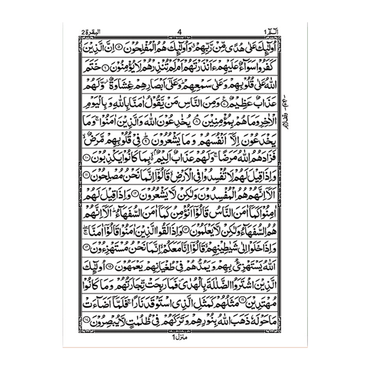 الٓمّٓ ١
4
البقرة ٢
اُولٰٓئِكَ عَلٰى هُدًى مِّنْ رَّبِّهِمْ وَاُولٰٓئِكَ هُمُ الْمُفْلِحُوْنَ ۝ اِنَّ الَّذِيْنَ
كَفَرُوْا سَوَآءٌ عَلَيْهِمْ ءَاَنْذَرْتَهُمْ اَمْ لَمْ تُنْذِرْهُمْ لَا يُؤْمِنُوْنَ ۝ خَتَمَ
اللّٰهُ عَلٰى قُلُوْبِهِمْ وَعَلٰى سَمْعِهِمْ وَعَلٰٓى اَبْصَارِهِمْ غِشَاوَةٌ وَّلَهُمْ
عَذَابٌ عَظِيْمٌ ۝ وَمِنَ النَّاسِ مَنْ يَّقُوْلُ اٰمَنَّا بِاللّٰهِ وَبِالْيَوْمِ
الْاٰخِرِ وَمَا هُمْ بِمُؤْمِنِيْنَ ۝ يُخٰدِعُوْنَ اللّٰهَ وَالَّذِيْنَ اٰمَنُوْا وَمَا
يَخْدَعُوْنَ اِلَّآ اَنْفُسَهُمْ وَمَا يَشْعُرُوْنَ ۝ فِيْ قُلُوْبِهِمْ مَّرَضٌ
فَزَادَهُمُ اللّٰهُ مَرَضًا وَلَهُمْ عَذَابٌ اَلِيْمٌۢ بِمَا كَانُوْا يَكْذِبُوْنَ ۝
وَاِذَا قِيْلَ لَهُمْ لَا تُفْسِدُوْا فِى الْاَرْضِ قَالُوْٓا اِنَّمَا نَحْنُ مُصْلِحُوْنَ ۝
اَلَآ اِنَّهُمْ هُمُ الْمُفْسِدُوْنَ وَلٰكِنْ لَّا يَشْعُرُوْنَ ۝ وَاِذَا قِيْلَ لَهُمْ
اٰمِنُوْا كَمَآ اٰمَنَ النَّاسُ قَالُوْٓا اَنُؤْمِنُ كَمَآ اٰمَنَ السُّفَهَآءُ اَلَآ اِنَّهُمْ
هُمُ السُّفَهَآءُ وَلٰكِنْ لَّا يَعْلَمُوْنَ ۝ وَاِذَا لَقُوا الَّذِيْنَ اٰمَنُوْا قَالُوْٓا اٰمَنَّا
وَاِذَا خَلَوْا اِلٰى شَيٰطِيْنِهِمْ قَالُوْٓا اِنَّا مَعَكُمْ اِنَّمَا نَحْنُ مُسْتَهْزِءُوْنَ ۝
اَللّٰهُ يَسْتَهْزِئُ بِهِمْ وَيَمُدُّهُمْ فِيْ طُغْيَانِهِمْ يَعْمَهُوْنَ ۝ اُولٰٓئِكَ
الَّذِيْنَ اشْتَرَوُا الضَّلٰلَةَ بِالْهُدٰى فَمَا رَبِحَتْ تِّجَارَتُهُمْ وَمَا كَانُوْا
مُهْتَدِيْنَ ۝ مَثَلُهُمْ كَمَثَلِ الَّذِى اسْتَوْقَدَ نَارًا فَلَمَّآ اَضَآءَتْ
مَا حَوْلَهٗ ذَهَبَ اللّٰهُ بِنُوْرِهِمْ وَتَرَكَهُمْ فِيْ ظُلُمٰتٍ لَّا يُبْصِرُوْنَ ۝
منزل ١